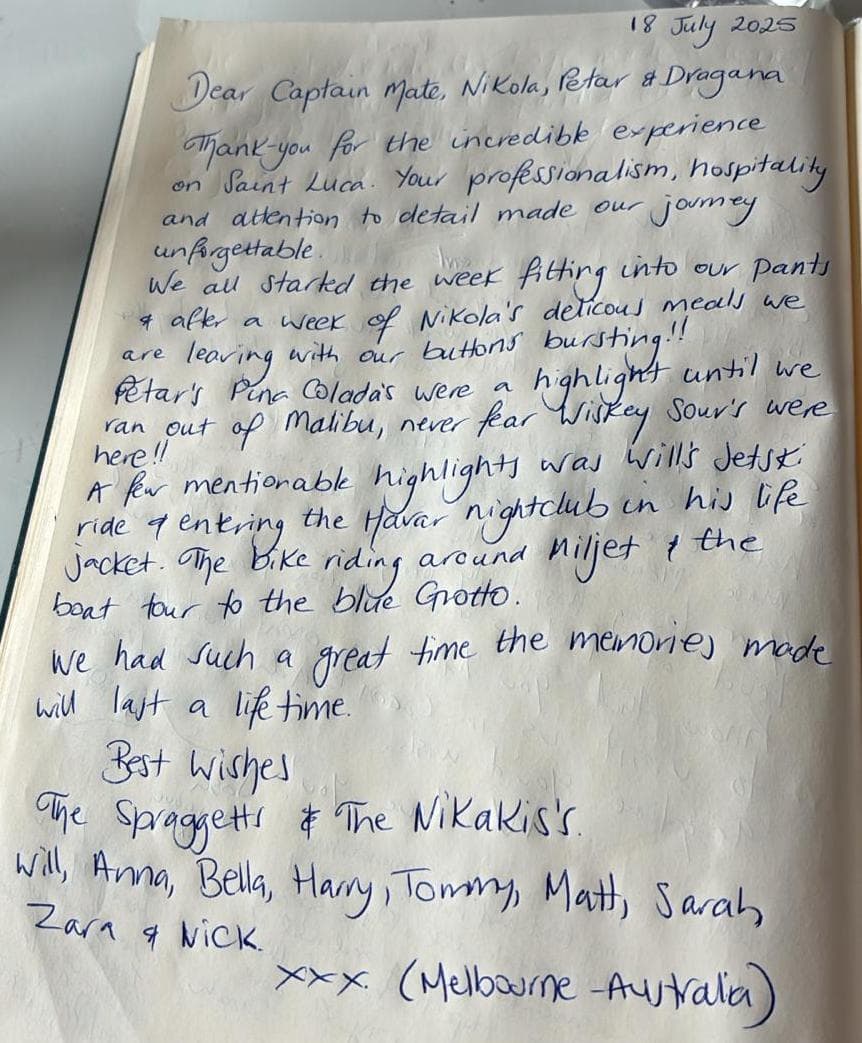 18 July 2025
Dear Captain Mate, Nikola, Petar & Dragana
Thank-you for the incredible experience
on Saint Luca. Your professionalism, hospitality
and attention to detail made our journey
unforgettable.
We all started the week fitting into our pants
& after a week of Nikola's delicous meals we
are leaving with our buttons bursting!!
Petar's Pina Colada's were a highlight until we
ran out of Malibu, never fear Wiskey Sour's were
here!!
A few mentionable highlights was Will's Jetski
ride & entering the Havar nightclub in his life
jacket. The bike riding around Miljet & the
boat tour to the blue Grotto.
We had such a great time the memories made
will last a life time.
Best Wishes
The Spraggetts & The Nikakis's.
Will, Anna, Bella, Harry, Tommy, Matt, Sarah,
Zara & Nick.
xxx. (Melbourne - Australia)